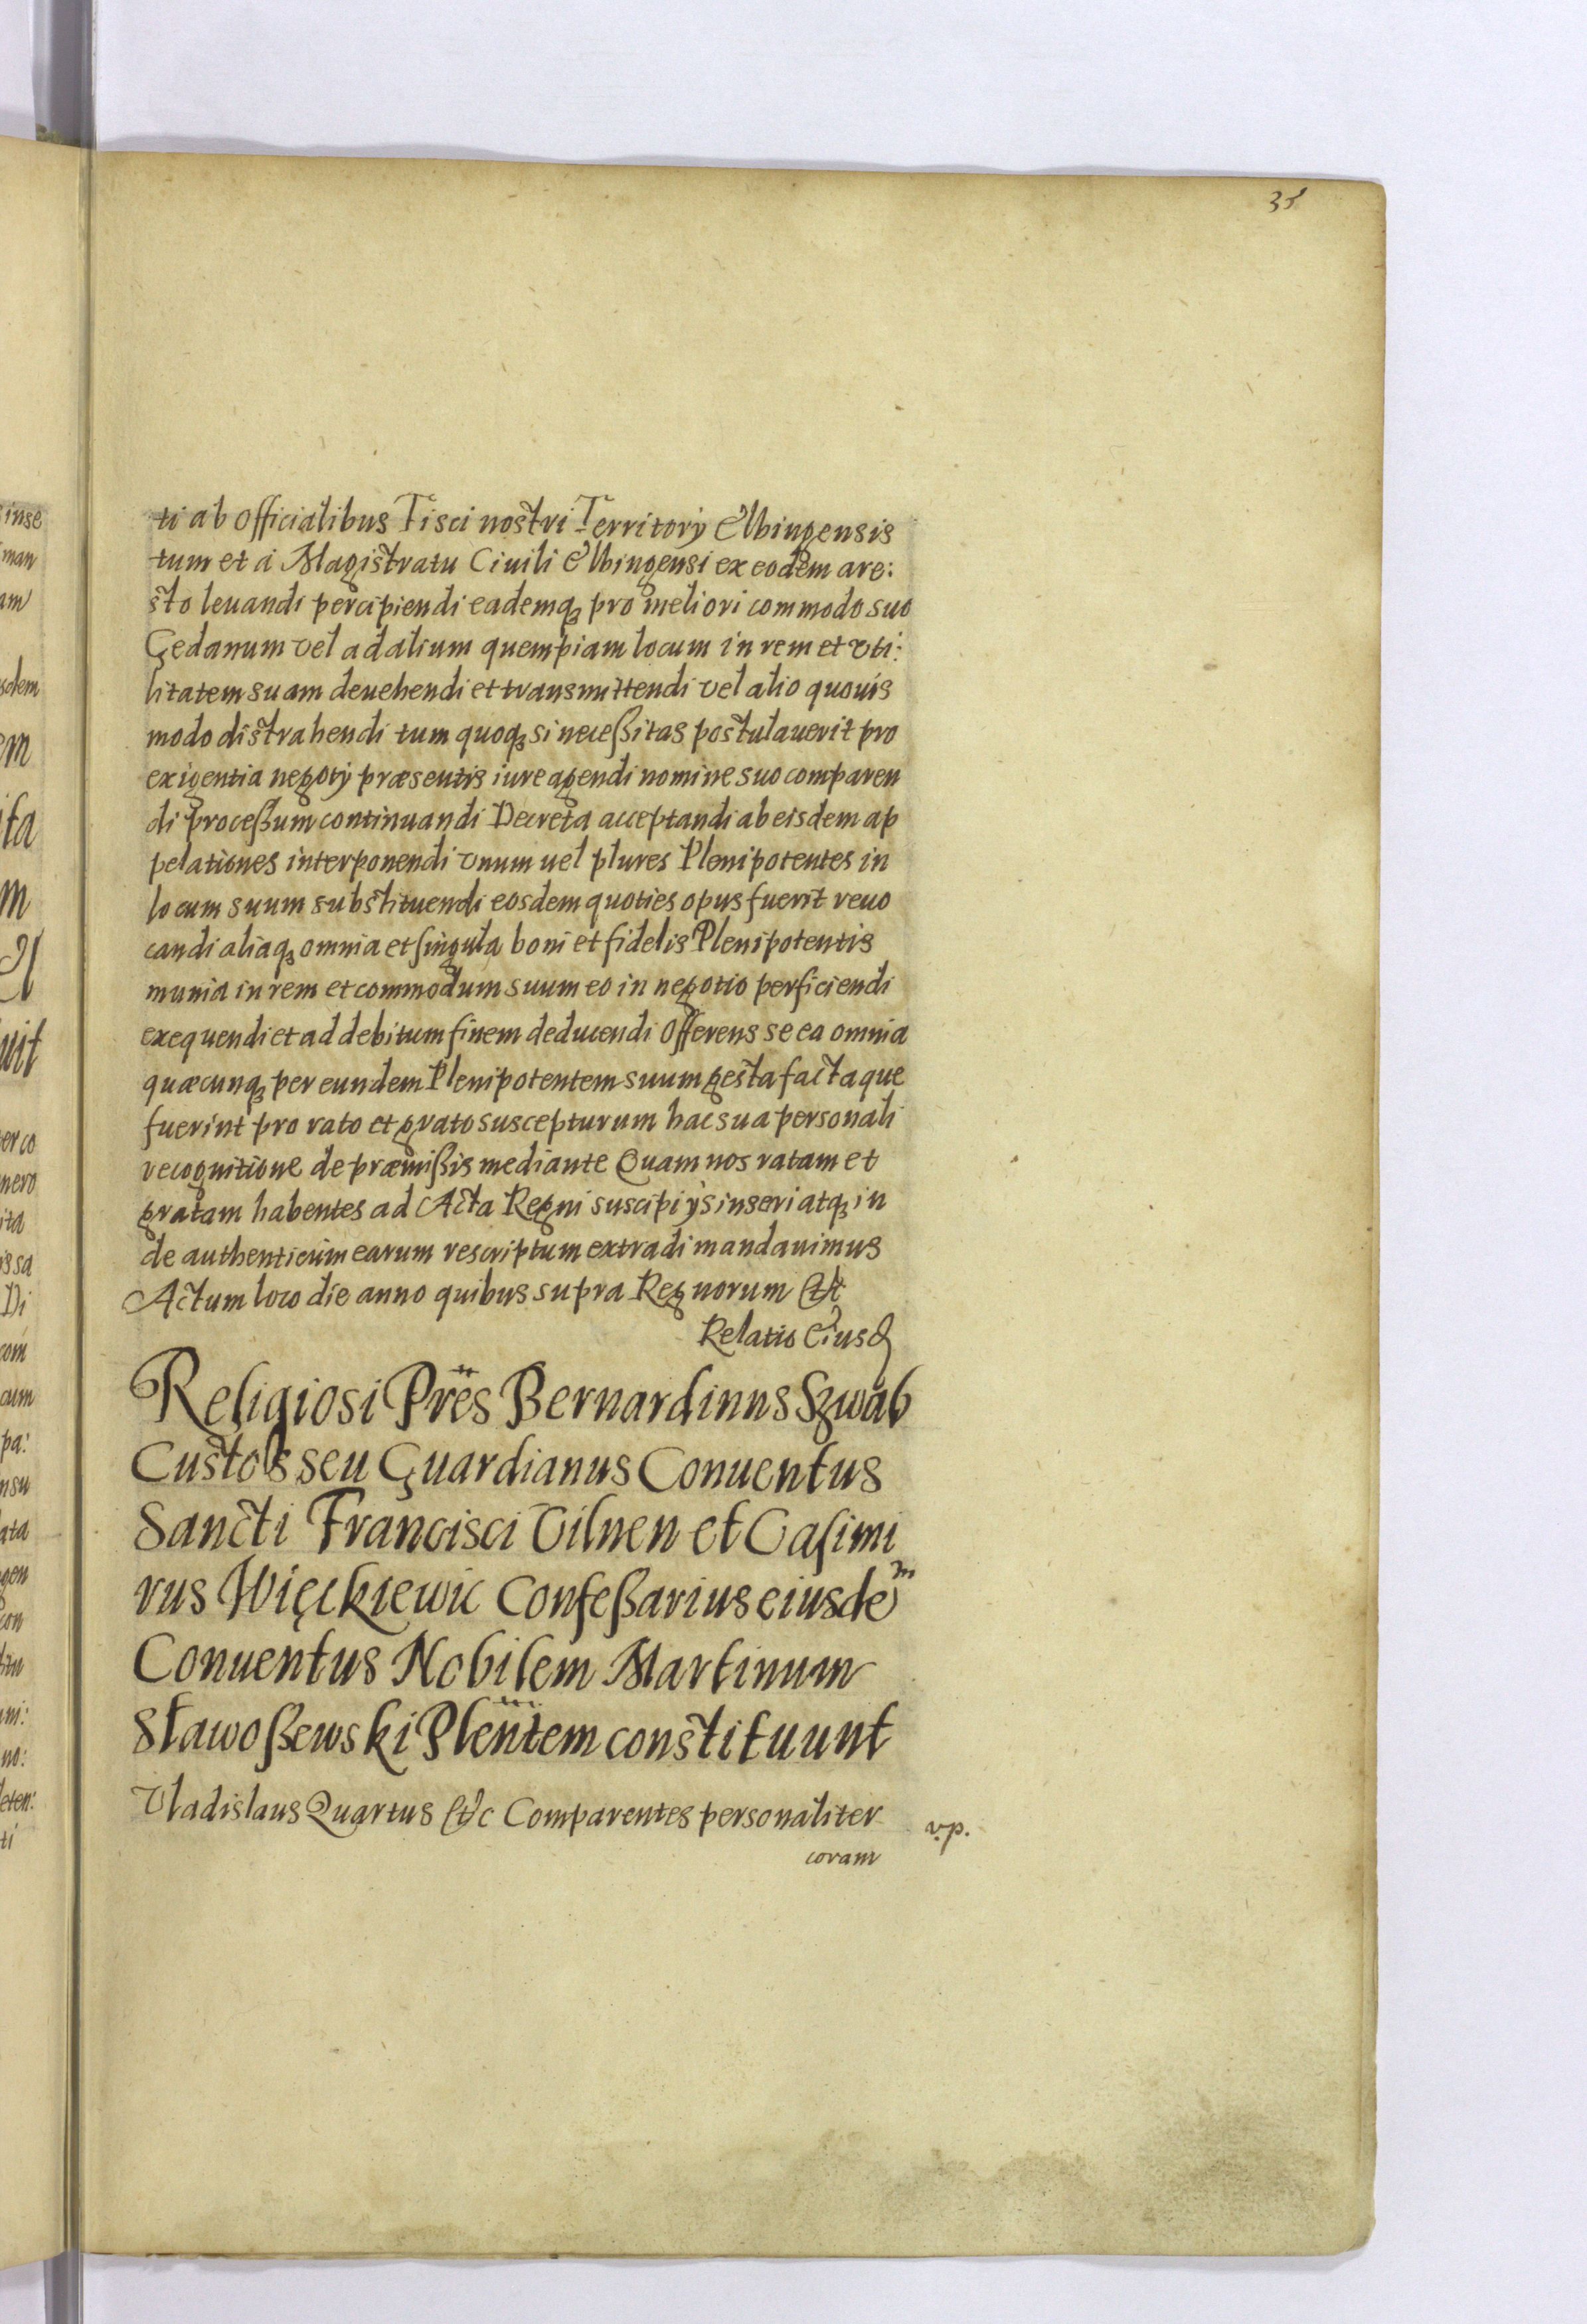 35
ti ab officialibus Fisci nostri Territorÿ Elbingensis
tum et à Magistratu Ciuili Elbingensi ex eodem are:
sto leuandi percipiendi eademqꝫ pro meliori commodo suo
Gedanum vel ad alium quempiam locum in rem et vti:
litatem suam deuehendi et transmittendi vel alio quouis
modo distrahendi tum quoqꝫ si neceßitas postulauerit pro
exigentia negotÿ præsentis iure agendi nomine suo comparen
di proceßum continuandi Decreta acceptandi ab eisdem ap
pelationes interponendi vnum uel plures Plenipotentes in
locum suum substituendi eosdem quoties opus fuerit reuo
candi aliaqꝫ omnia et singula boni et fidelis Plenipotentis
munia in rem et commodum suum eo in negotio perficiendi
exequendi et ad debitum finem deducendi Offerens se ea omnia
quæcunqꝫ per eundem Plenipotentem suum gesta factaque
fuerint pro rato et grato suscepturum hac sua personali
recognitione de præmißis mediante Quam nos ratam et
gratam habentes ad Acta Regni suscipi ÿs inseri atqꝫ in
de authenticum earum rescriptum extradi mandauimus
Actum loco die anno quibus supra Regnorum &c
Relatio Eiusd
Religiosi Pr̃es Bernardinus Szwab
Custos seu Guardianus Conuentus
Sancti Francisci Vilnen et Casimi
rus Więckiewic Confeßarius eiusdem
Conuentus Nobilem Martinum
Stawoßewski Plen̄tem constituunt
Vladislaus Quartus &c Comparentes personaliter
v.p.
coram